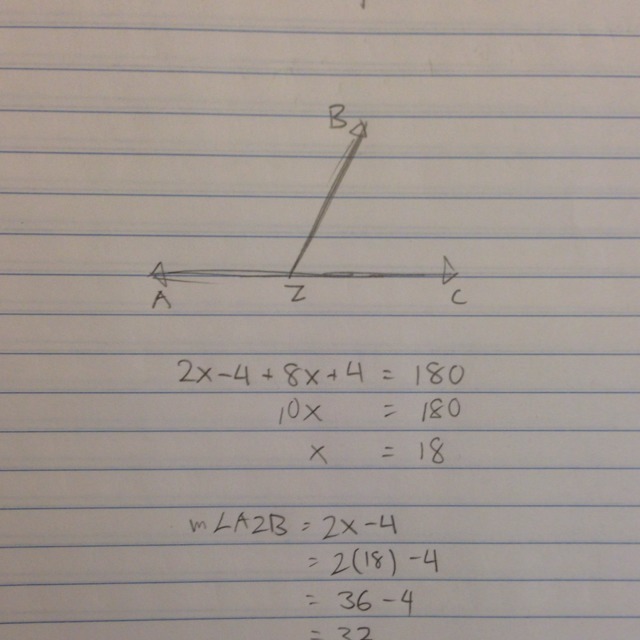 B
A Z C
2x-4 + 8x+4 = 180
10x = 180
x = 18
m∠AZB = 2x-4
= 2(18) -4
= 36 - 4
= 32